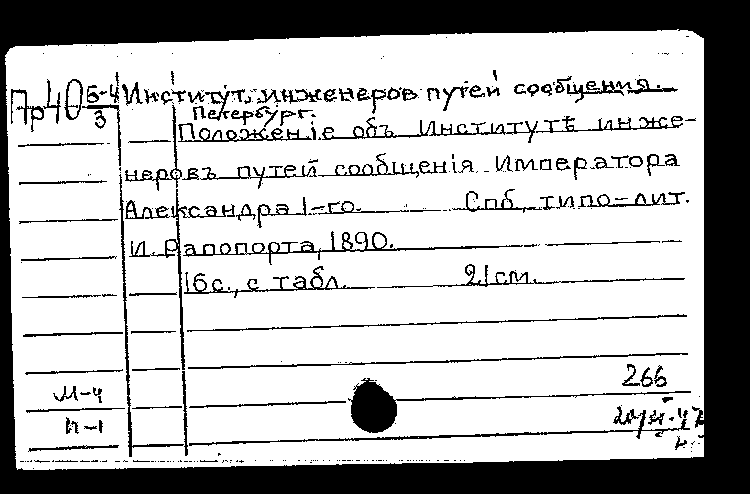 Пр40 Б-4/3 Институт инженеров путей сообщения.
Петербург.
Положенiе объ Институтѣ инже-
неровъ путей сообщенiя Императора
Александра I-го. Спб, типо-лит.
И. Рапопорта, 1890.
16с., с табл. 21см.
266
М-4
П-1